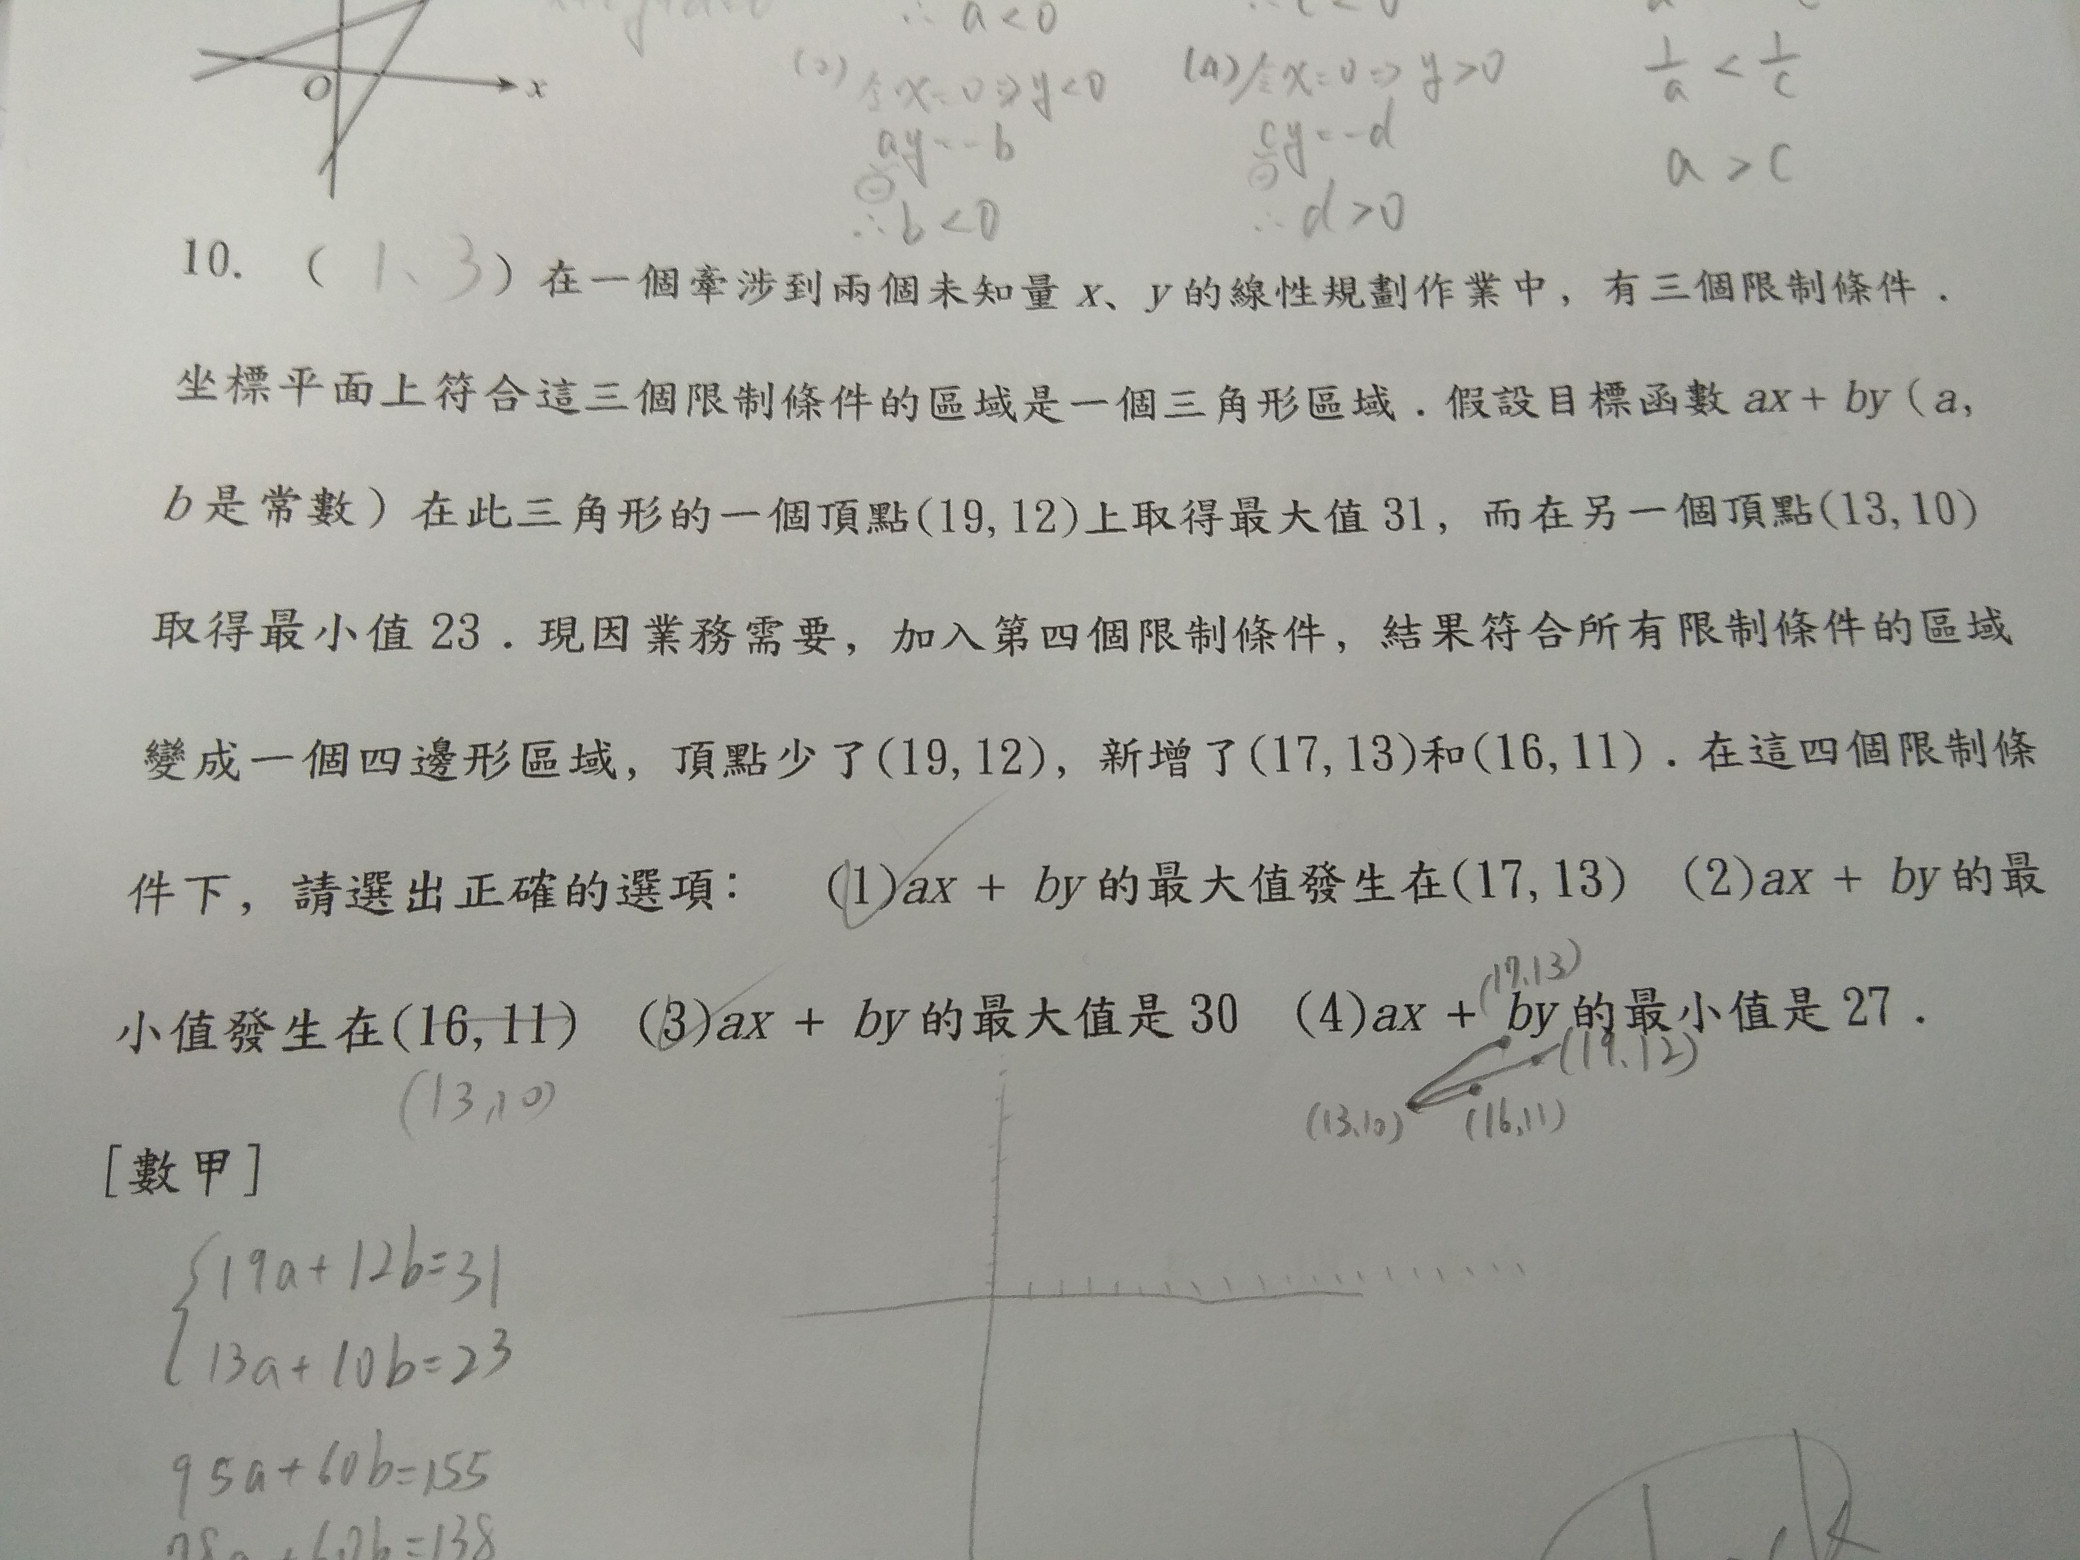 ∴ a<0
(2) 令x=0⇒y<0
(4) 令x=0⇒y>0
1/a < 1/c
O
x
ay=-b
cy=-d
a>c
∴b<0
∴d>0
10. ( 1、3 ) 在一個牽涉到兩個未知量 x、y 的線性規劃作業中，有三個限制條件．
坐標平面上符合這三個限制條件的區域是一個三角形區域．假設目標函數 ax + by（a,
b 是常數）在此三角形的一個頂點(19, 12)上取得最大值 31，而在另一個頂點(13, 10)
取得最小值 23．現因業務需要，加入第四個限制條件，結果符合所有限制條件的區域
變成一個四邊形區域，頂點少了(19, 12)，新增了(17, 13)和(16, 11)．在這四個限制條
件下，請選出正確的選項： (1)ax + by 的最大值發生在(17, 13) (2)ax + by 的最
(17,13)
小值發生在(16, 11) (3)ax + by 的最大值是 30 (4)ax + by 的最小值是 27．
(19,12)
(13,10)
(13,10)
(16,11)
［數甲］
19a+12b=31
13a+10b=23
95a+60b=155
78a+60b=138